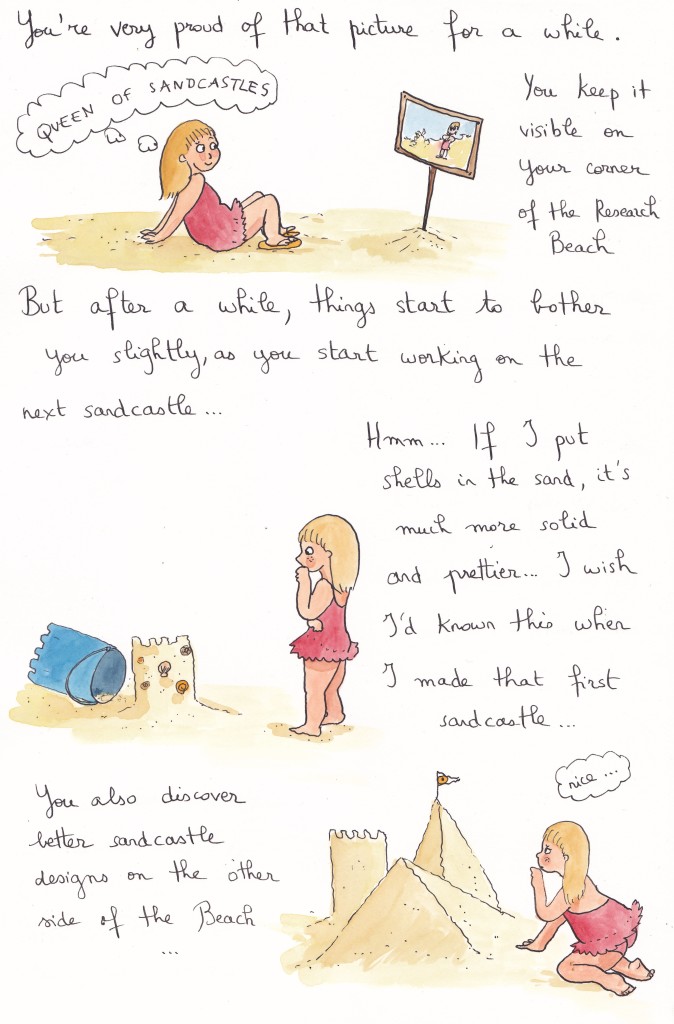 You're very proud of that picture for a while.
QUEEN OF SANDCASTLES
You keep it
visible on
your corner
of the Research
Beach
But after a while, things start to bother
you slightly, as you start working on the
next sandcastle...
Hmm... If I put
shells in the sand, it's
much more solid
and prettier... I wish
I'd known this when
I made that first
sandcastle...
nice...
You also discover
better sandcastle
designs on the other
side of the Beach
...